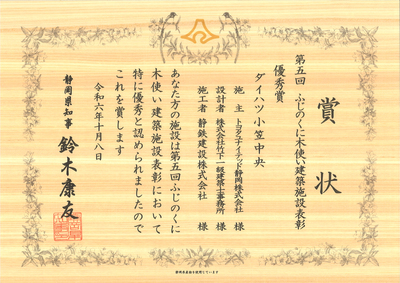 賞状
第五回 ふじのくに木使い建築施設表彰
優秀賞
ダイハツ小笠中央
施主 トヨタユナイテッド静岡株式会社 様
設計者 株式会社竹下一級建築士事務所 様
施工者 静鉄建設株式会社 様
あなた方の施設は第五回ふじのくに
木使い建築施設表彰において
特に優秀と認められましたので
これを賞します
令和六年十月八日
静岡県知事 鈴木康友
静岡県産紙を使用しています